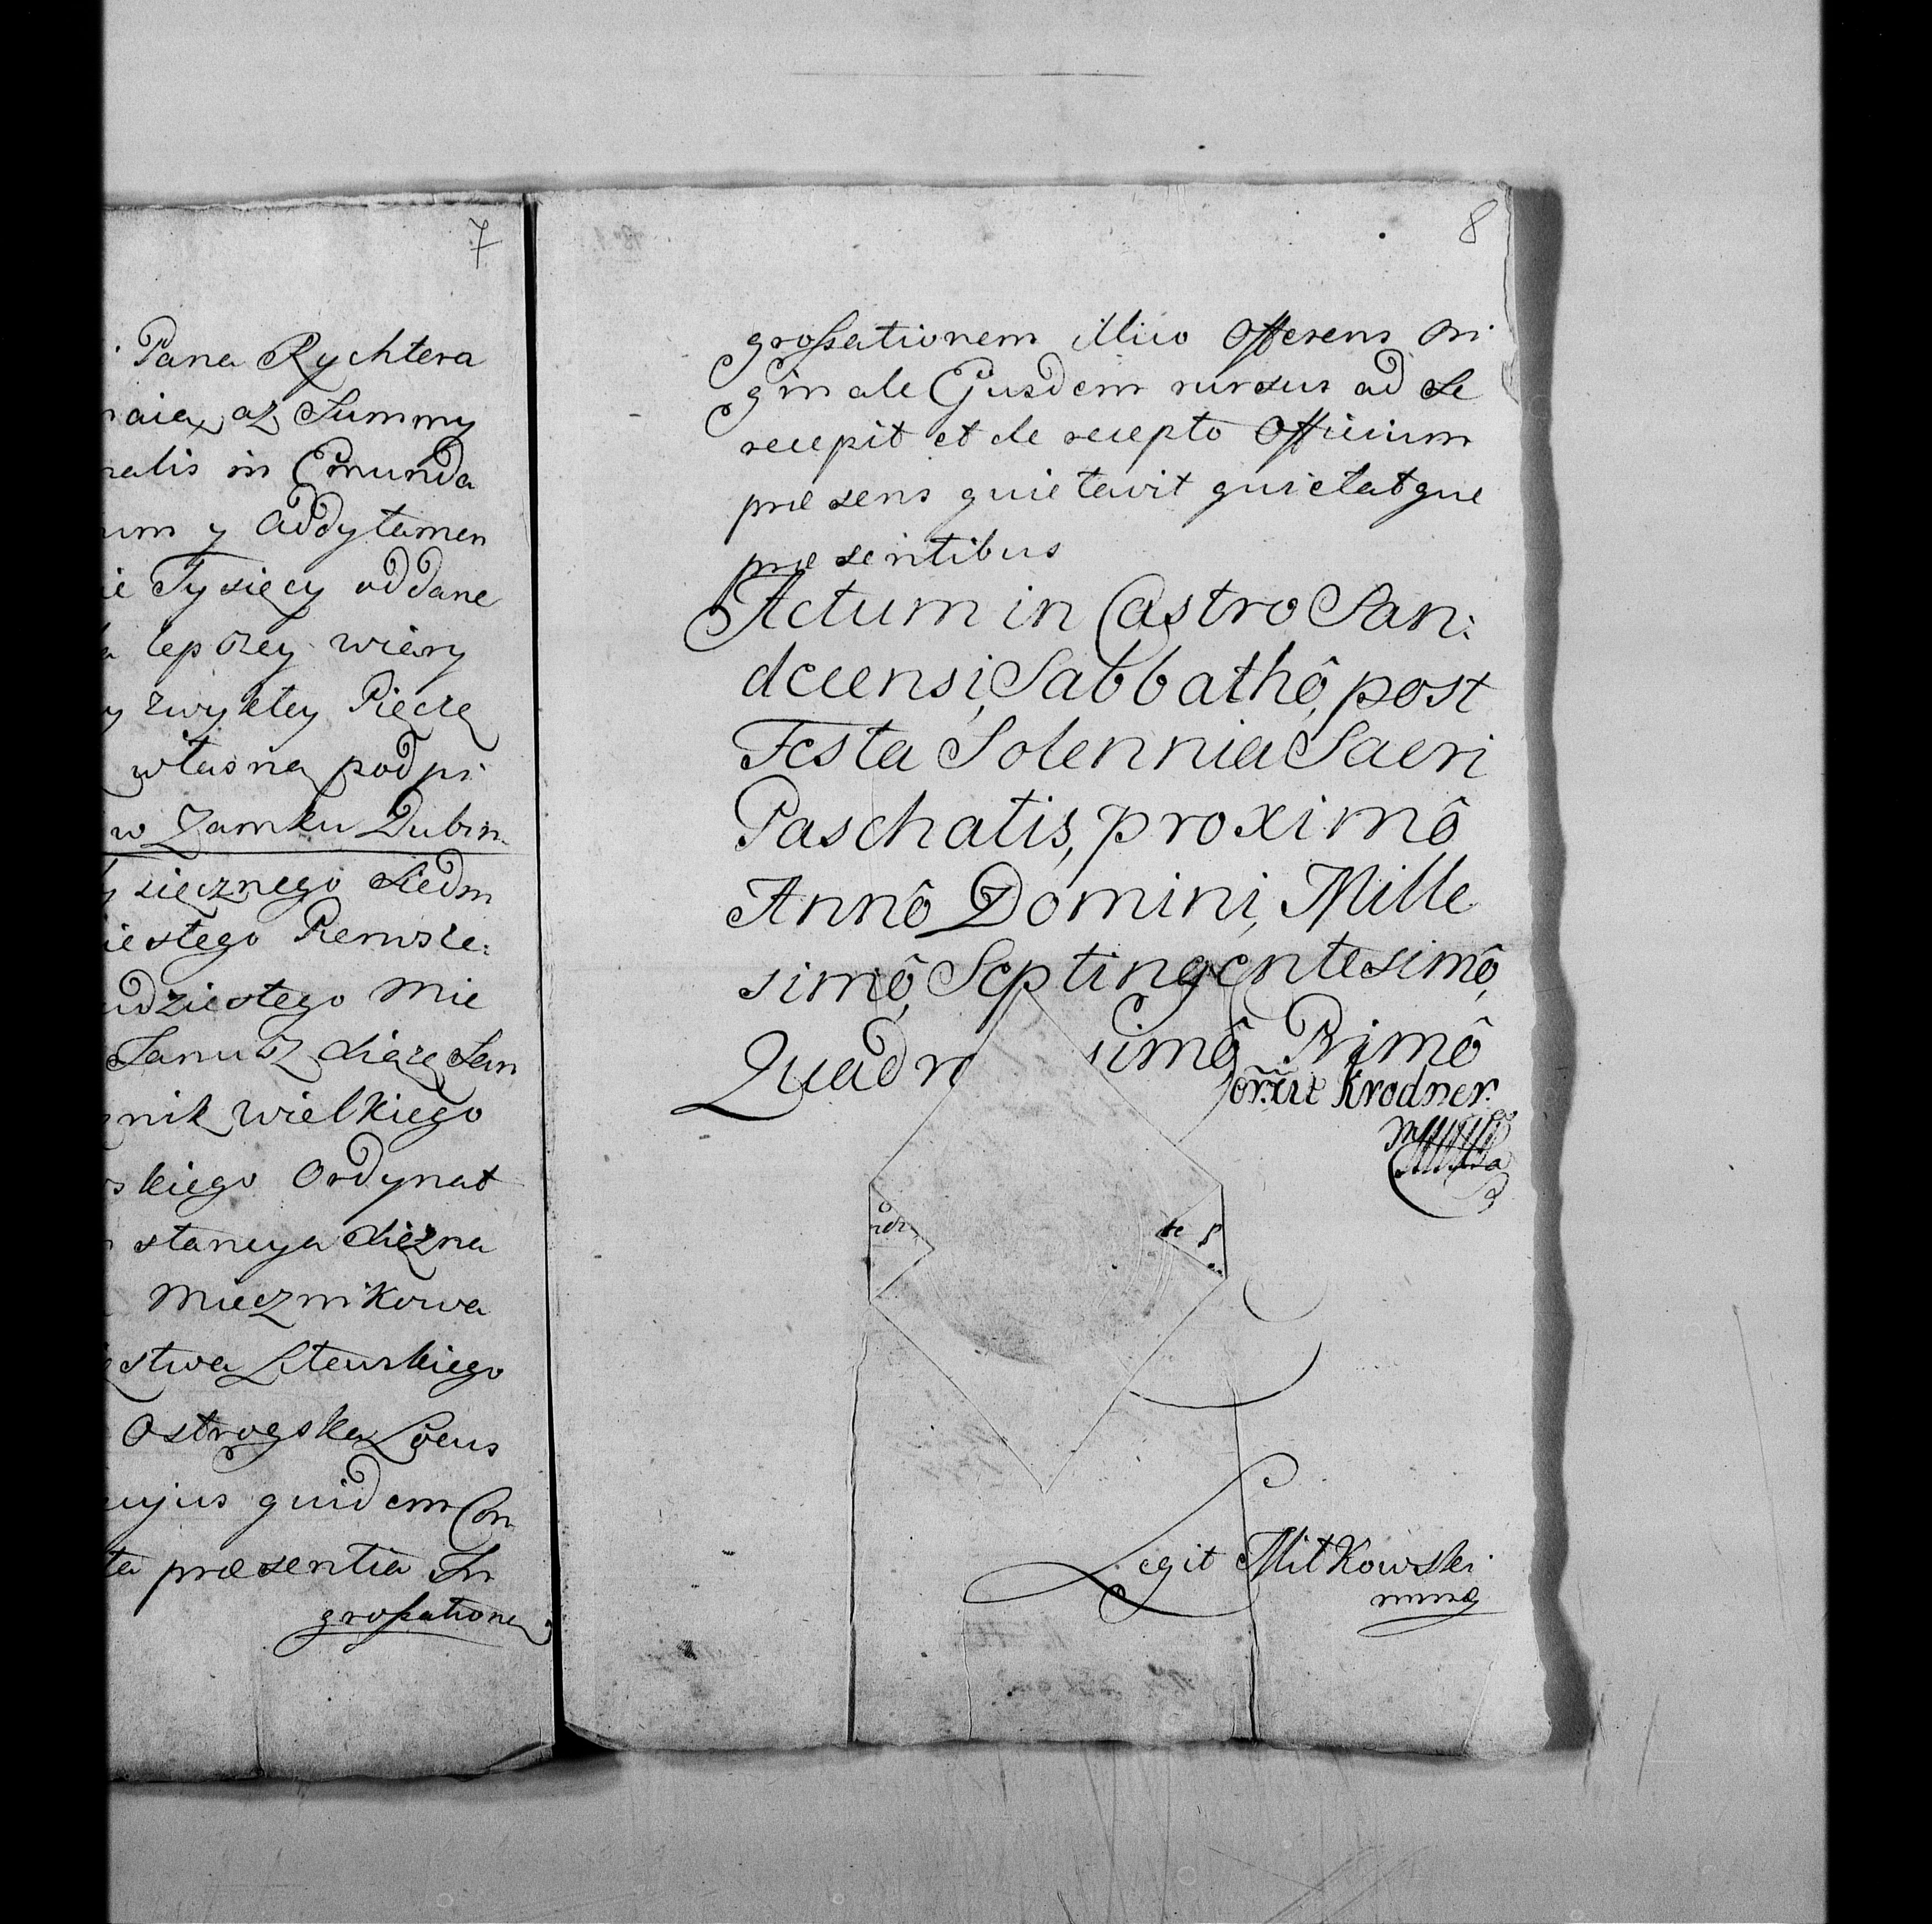 7
Pana Rychtera
aią az Summy
nalis in Emunda
um y Addytamen
ie Tysięcy oddane
a lepszey wiary
y zwykłey Pieczę
własną podpi
w Zamku Dubin
siącznego Siedm
iestego Pierwsze:
udziestego Mie
Janusz Xiąże San
nik wielkiego
skiego Ordynat
stancya Xiężna
Miecznikowa
stwa Litewskiego
Ostrogska Locus
ujus quidem Con
ta præsentia In
grossatione
8
grossationem illico Offerens Ori
ginale Ejusdem rursus ad se
recepit et de recepto Officium
præsens quietavit quietatque
præsentibus
Actum in Castro San:
decensi, Sabbathô, post
Festa Solennia Sacri
Paschatis, proximô
Annô Domini, Mille
simô, Septingentesimô,
Quadr simô Primô
Krodner.
Legit Mitkowski
mmp